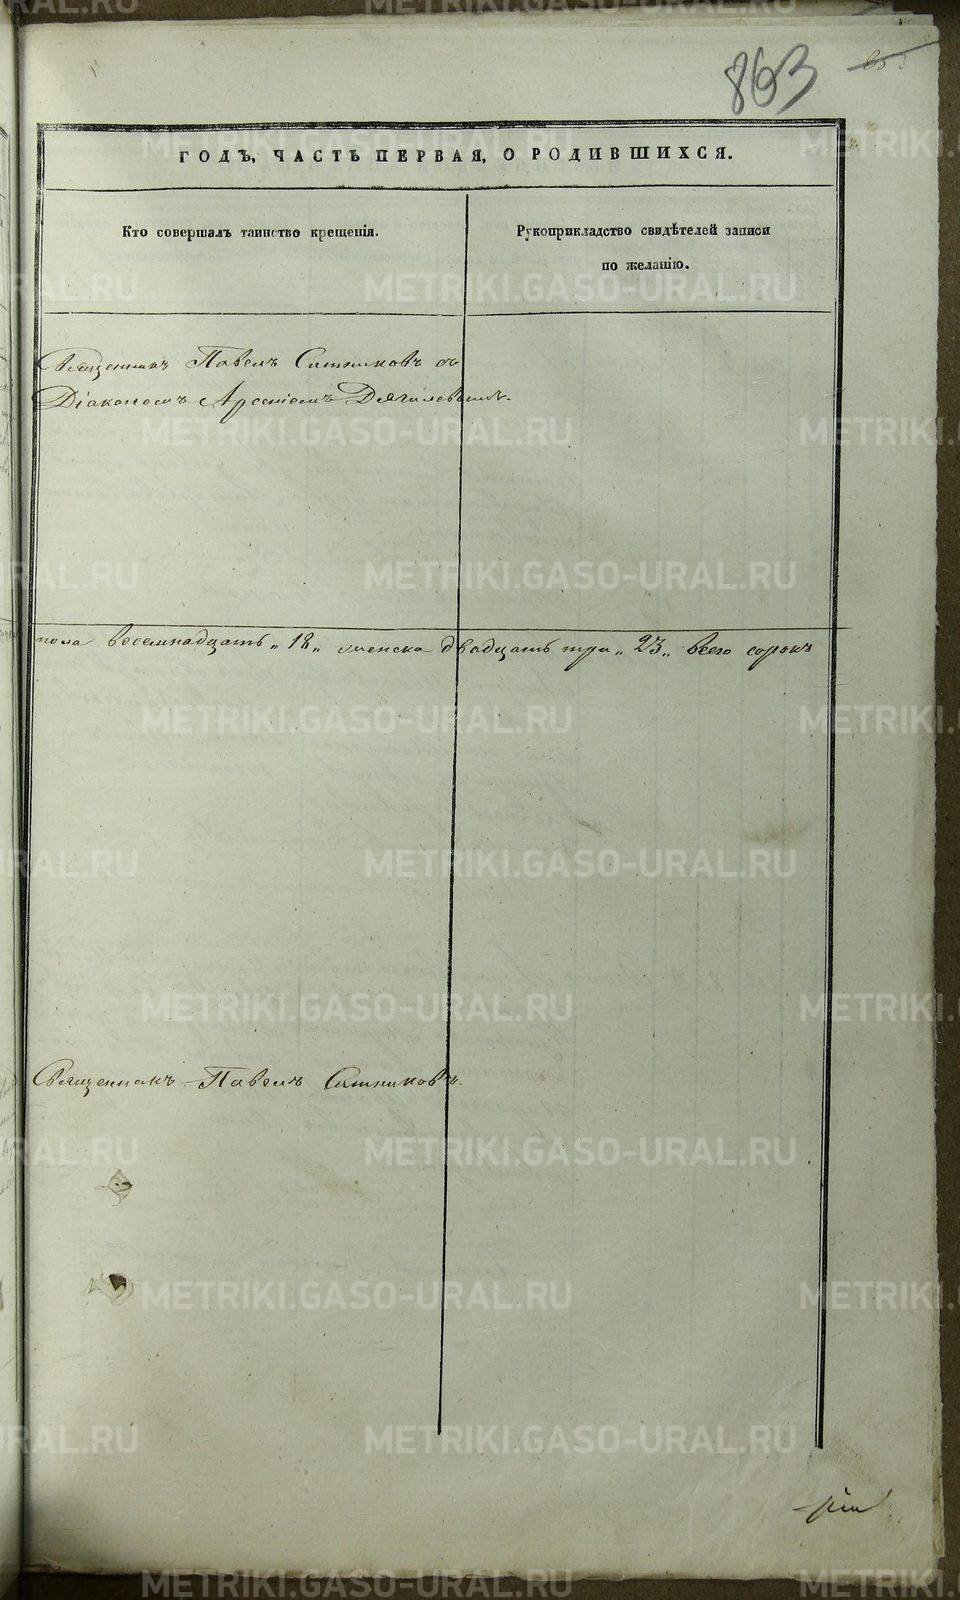 863
ГОДЪ, ЧАСТЬ ПЕРВАЯ, О РОДИВШИХСЯ.
Кто совершалъ таинство крещенія.
Рукоприкладство свидѣтелей записи
по желанію.
Священникъ Павелъ Ситниковъ съ
Діакономъ Арсеніемъ Дягилевымъ.
пола восемнадцать „18„ женска двадцать три „23„ всего сорокъ
Священникъ Павелъ Ситниковъ.
METRIKI.GASO-URAL.RU